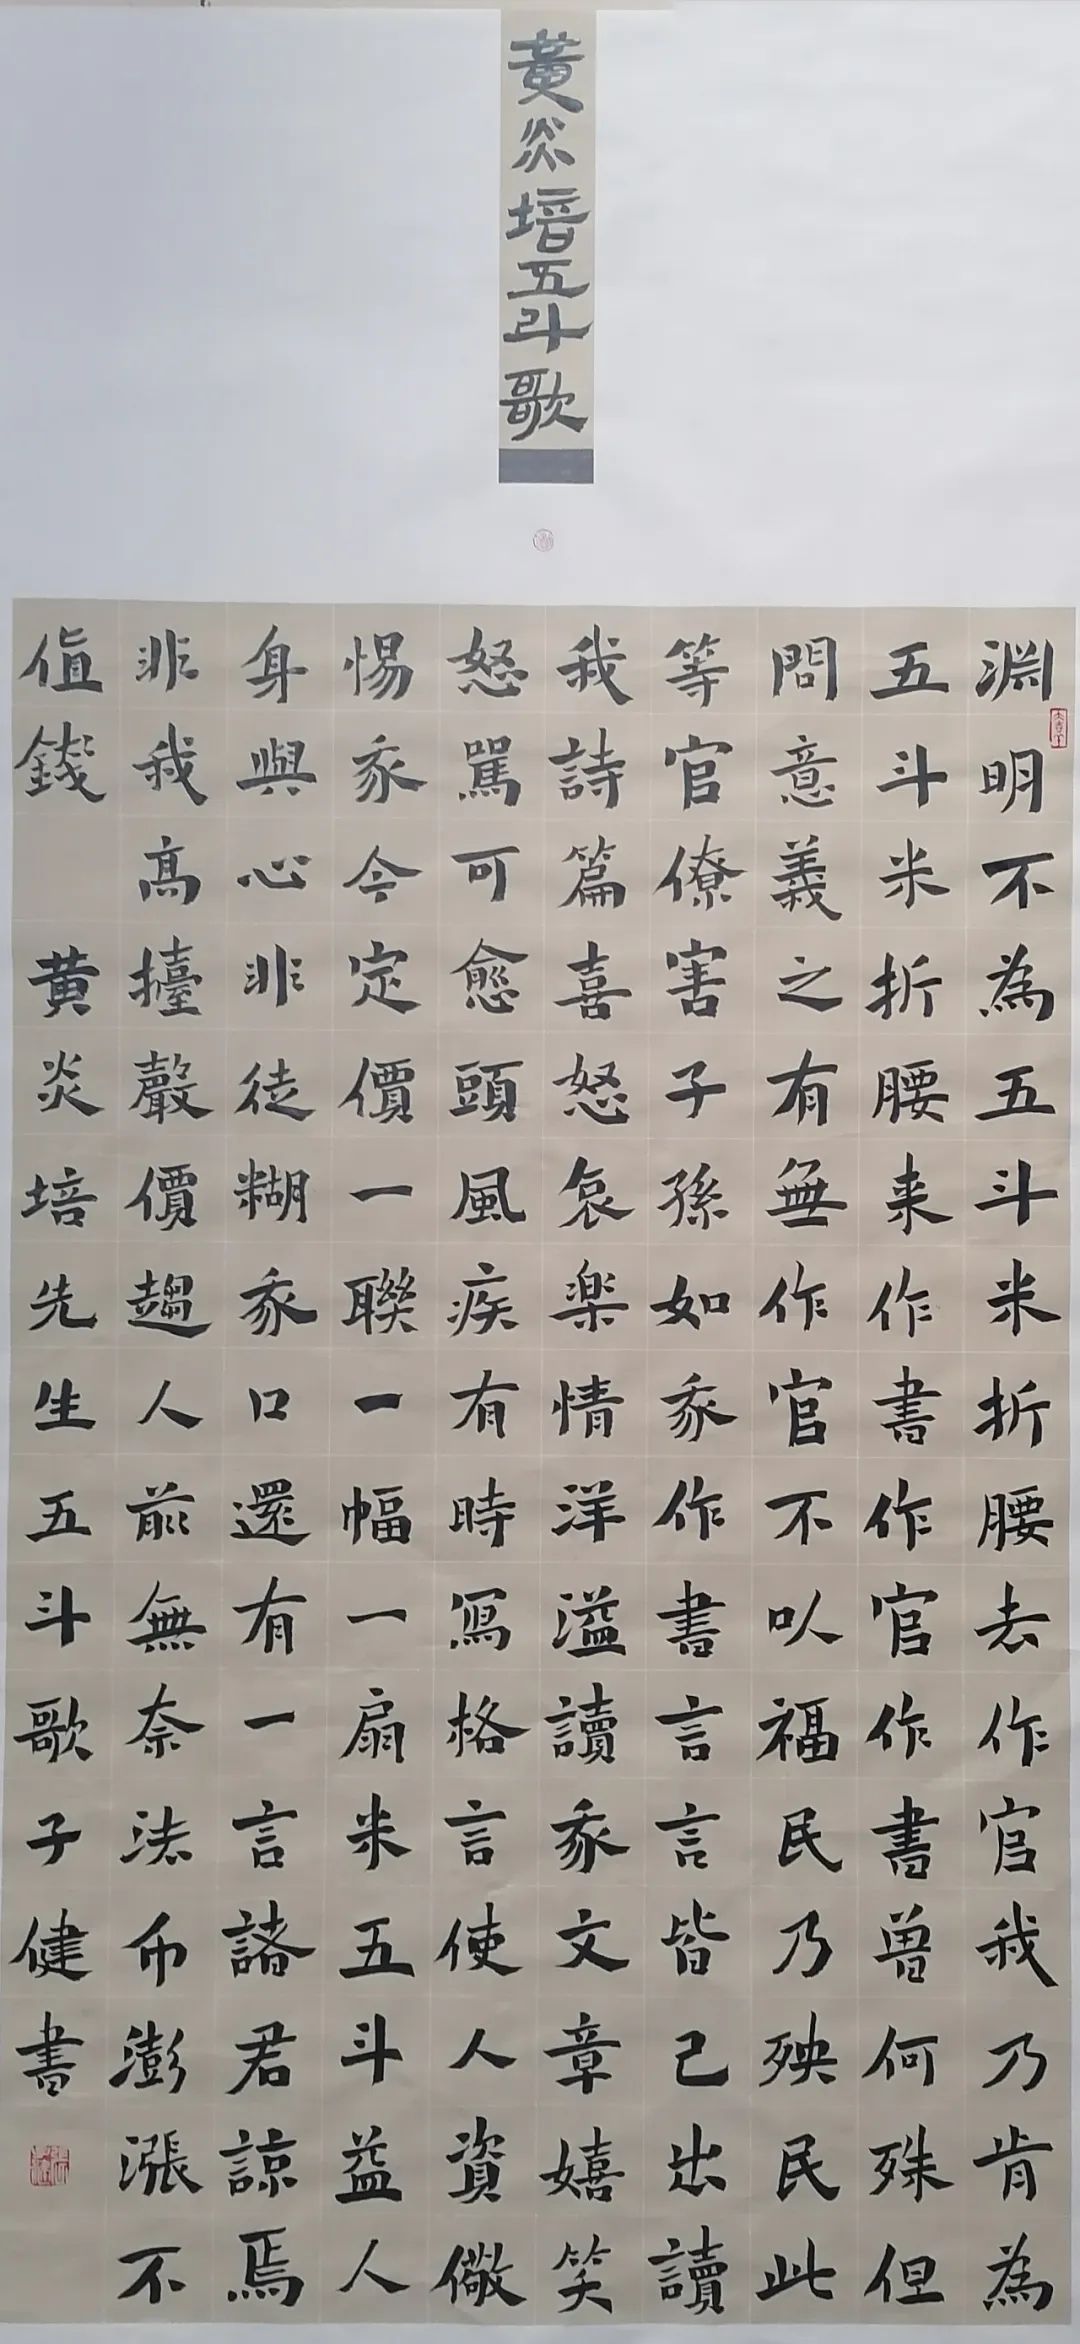 黄炎培五斗歌
淵明不為五斗米折腰去作官我乃肯為
五斗米折腰来作書作官作書曽何殊但
問意義之有無作官不以福民乃殃民此
等官僚害子孫如我作書言言皆己出讀
我詩篇喜怒哀楽情洋溢讀我文章嬉笑
怒罵可愈頭風疾有時寫格言使人資儆
惕我今定價一聯一幅一扇米五斗益人
身與心非徒糊我口還有一言諸君諒焉
非我高擡聲價趨人前無奈法币澎漲不
值錢 黄炎培先生五斗歌子健書